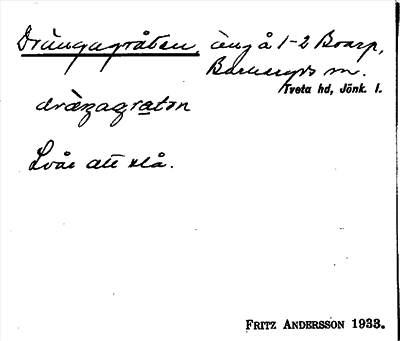 Drängagråten, äng å 1-2 Boarp,
Barnarps sn.
Tveta hd, Jönk. l.
dràŋagratən
Svår att slå.
FRITZ ANDERSSON 1933.